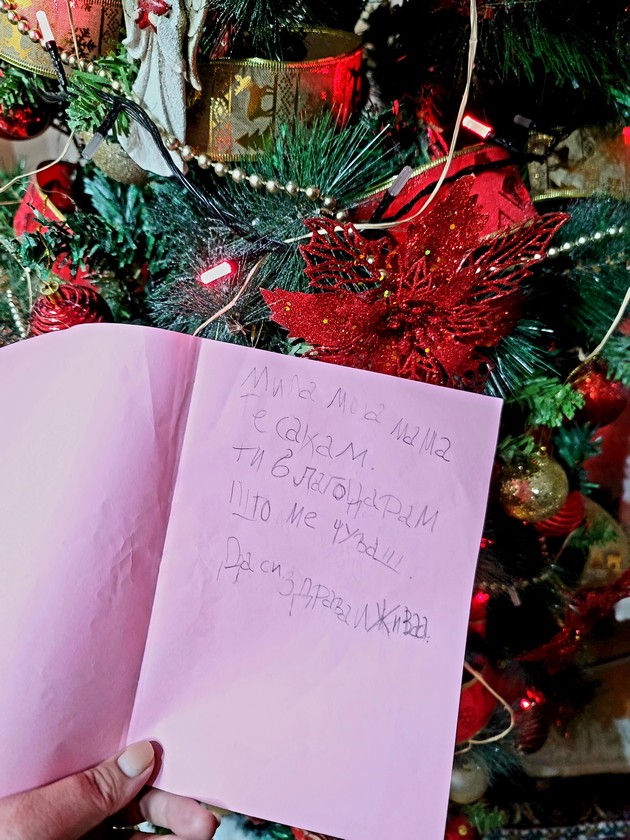 Мила моја мама
Те сакам.
ти благодарам
што ме чуваш.
Да си здрава и Жива.